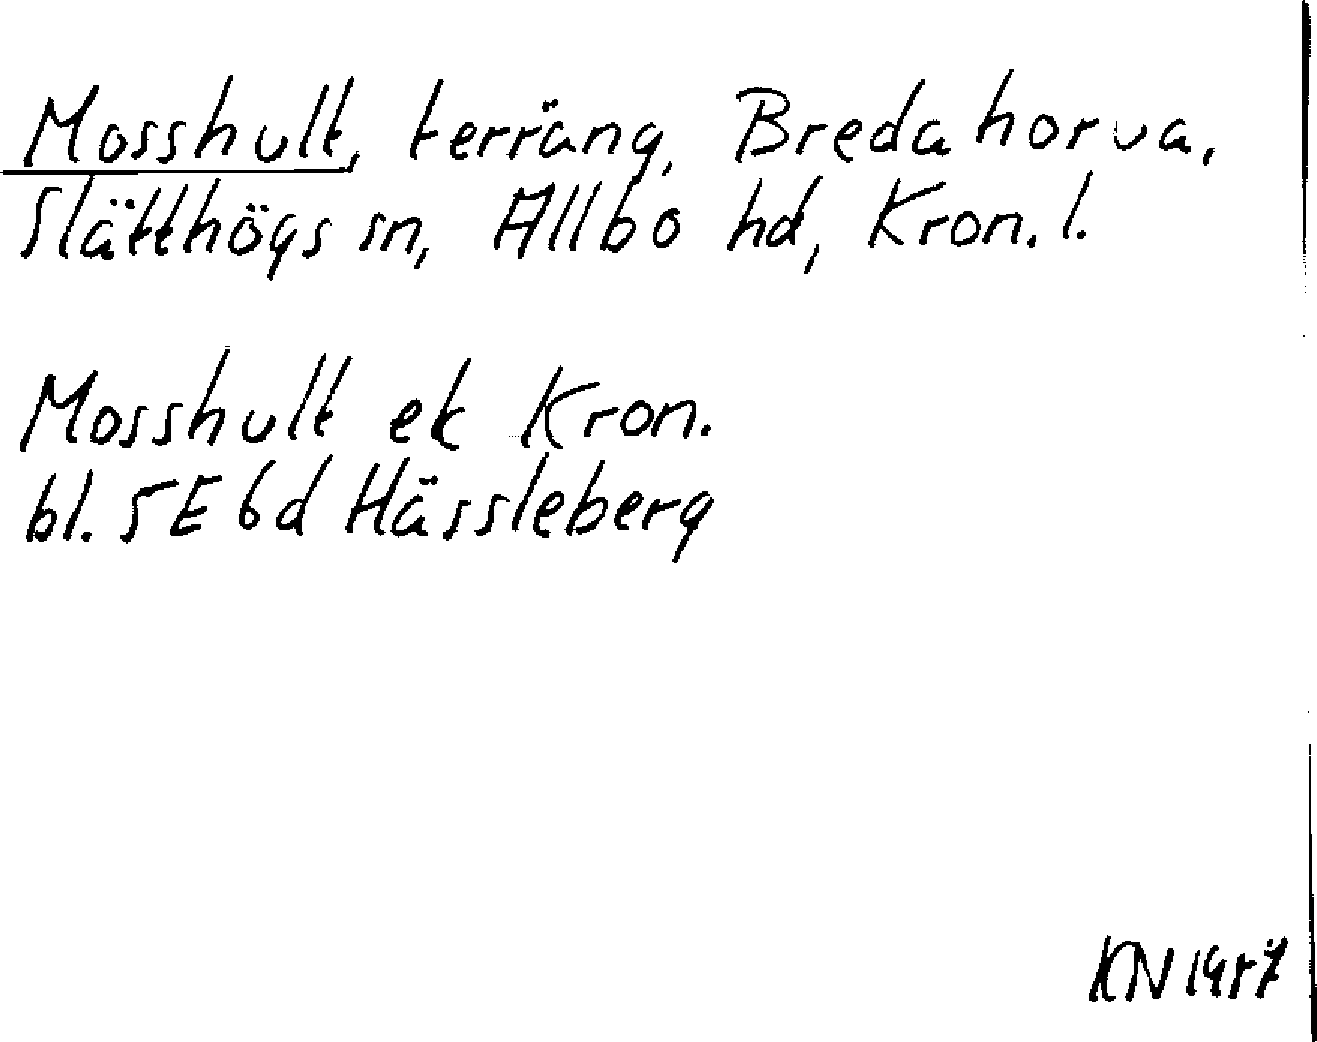 Mosshult, terräng, Bredahorva,
Slätthögs sn, Allbo hd, Kron. l.
Mosshult ek Kron.
bl. 5E 6d Hässleberg
KN